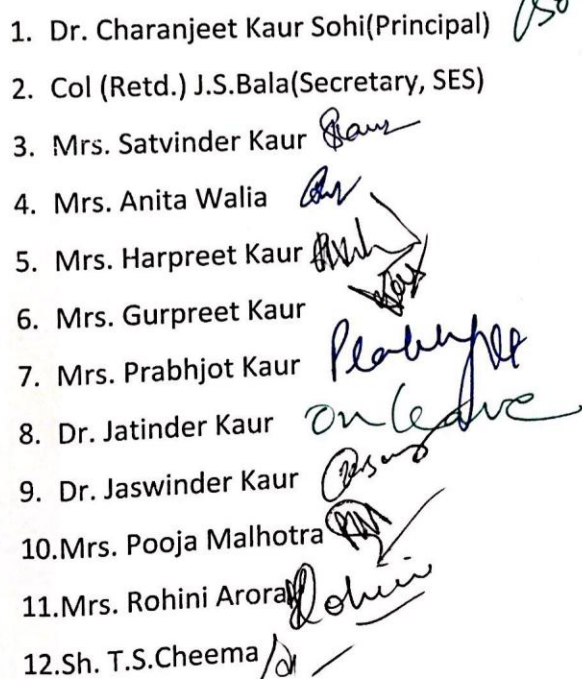 1. Dr. Charanjeet Kaur Sohi(Principal)
2. Col (Retd.) J.S.Bala(Secretary, SES)
3. Mrs. Satvinder Kaur
4. Mrs. Anita Walia
5. Mrs. Harpreet Kaur
6. Mrs. Gurpreet Kaur
7. Mrs. Prabhjot Kaur
8. Dr. Jatinder Kaur on leave
9. Dr. Jaswinder Kaur
10.Mrs. Pooja Malhotra
11.Mrs. Rohini Arora Rohini
12.Sh. T.S.Cheema